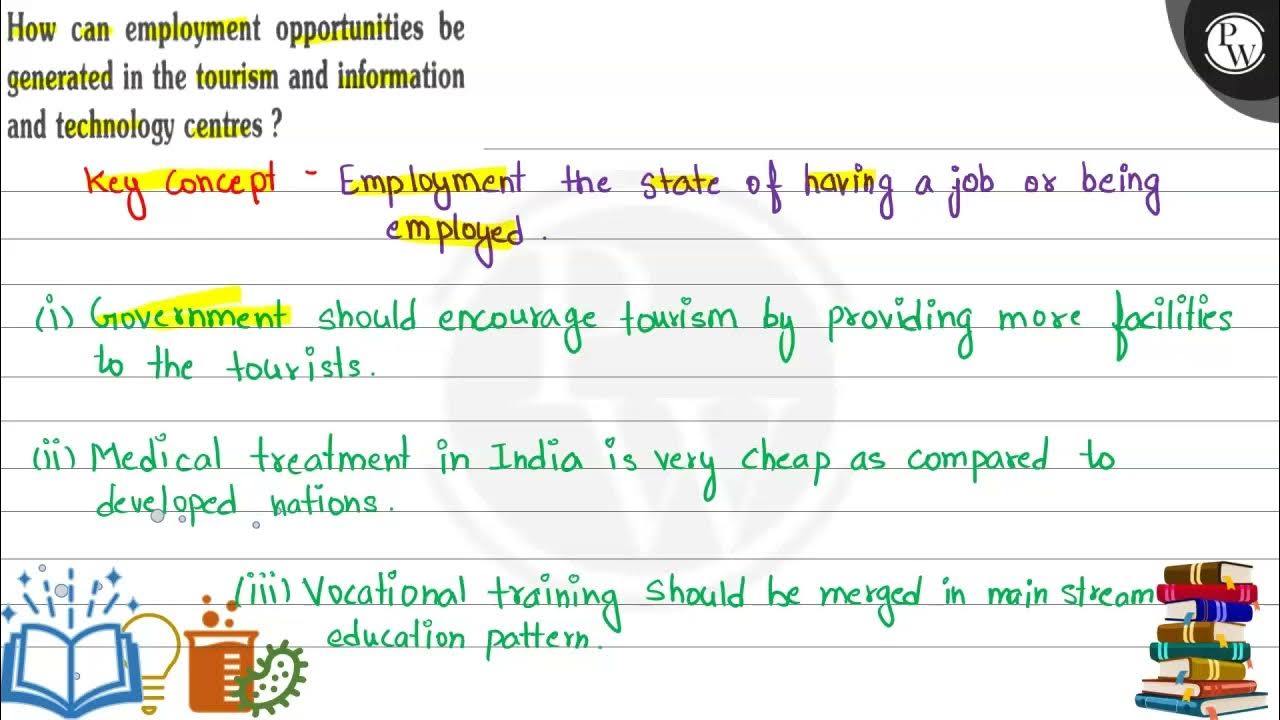 How can employment opportunities be
generated in the tourism and information
and technology centres ?
PW
Key Concept - Employment the state of having a job or being
employed.
(i) Government should encourage tourism by providing more facilities
to the tourists.
(ii) Medical treatment in India is very cheap as compared to
developed nations.
(iii) Vocational training should be merged in main stream
education pattern.